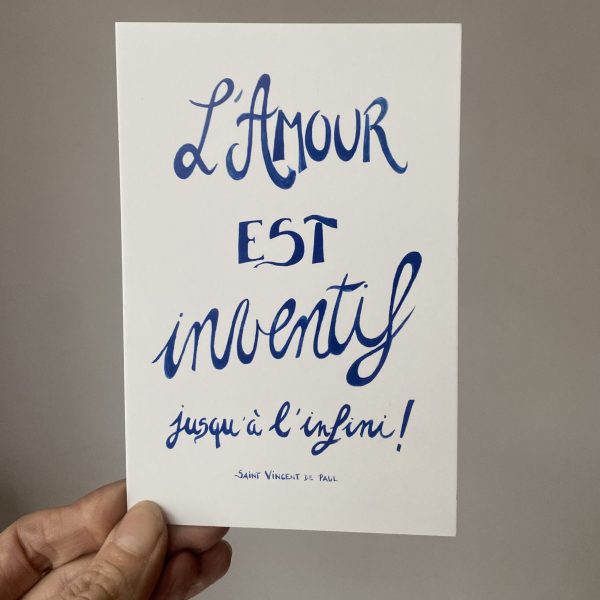 L'AMOUR
EST
inventif
jusqu'à l'infini !
SAINT VINCENT DE PAUL